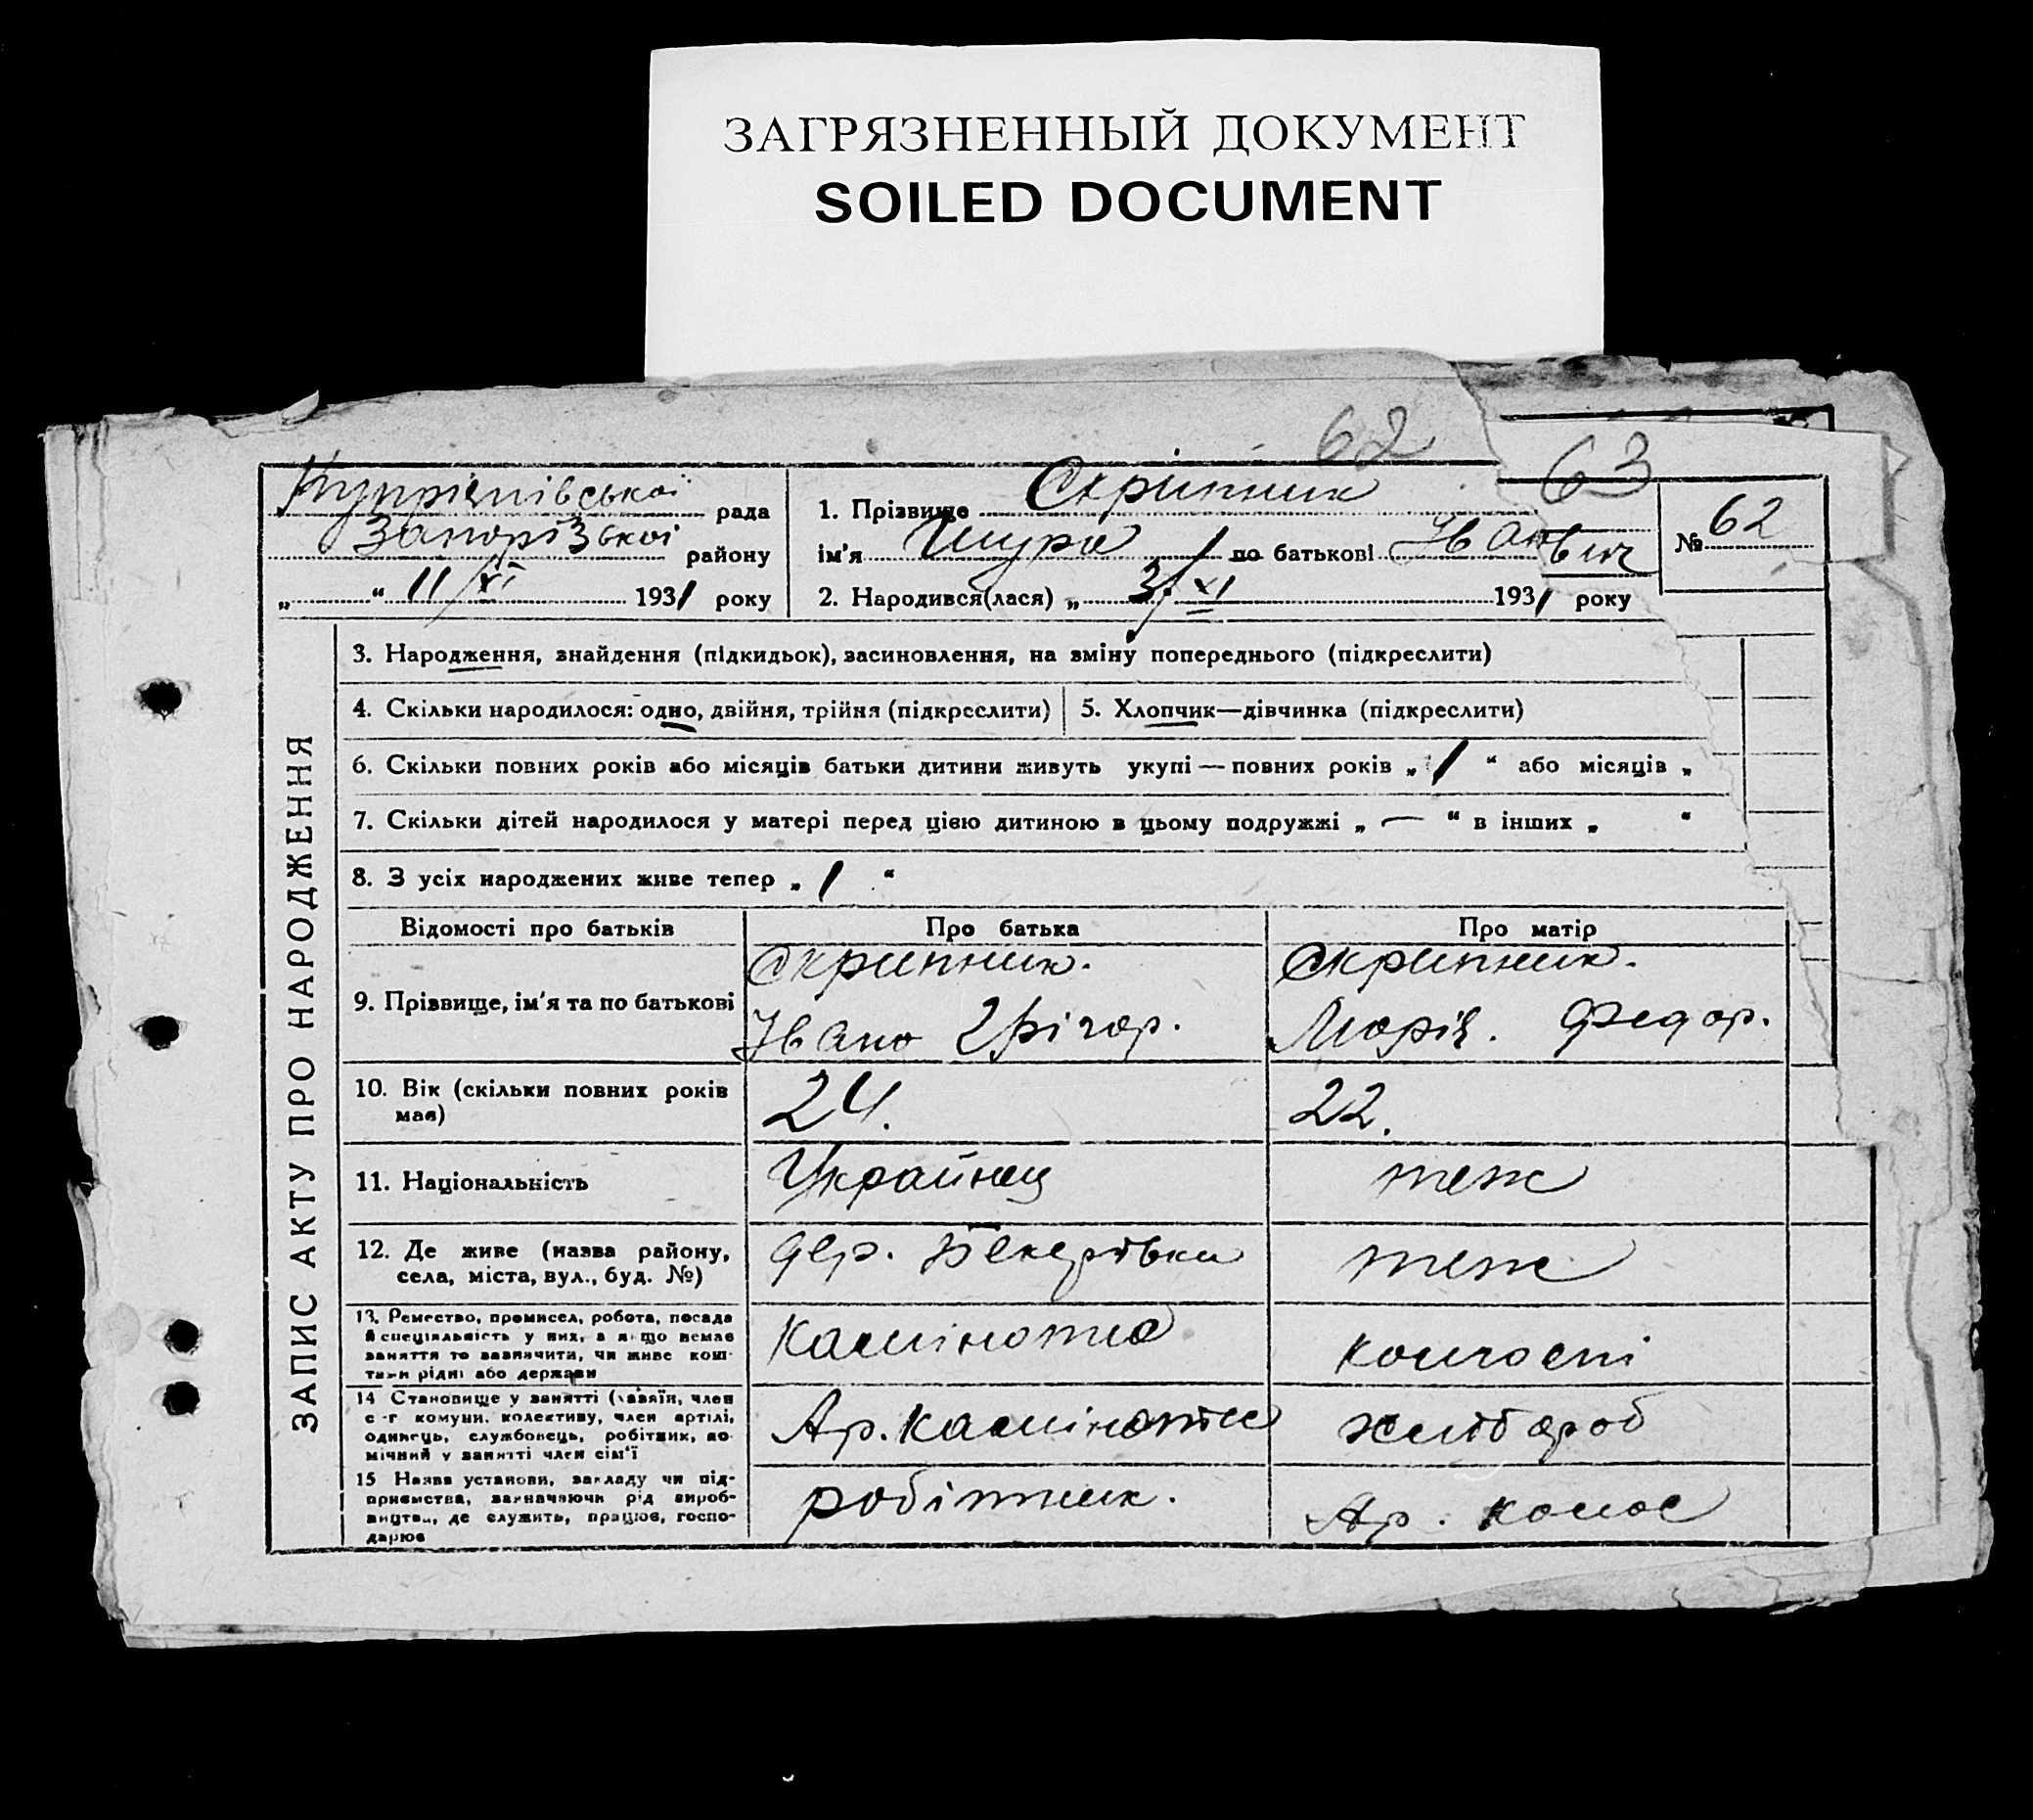 ЗАГРЯЗНЕННЫЙ ДОКУМЕНТ
SOILED DOCUMENT
62
63
рада
Запорізькоі району
„ “ 11/XI 1931 року
1. Прізвище Скрипник
ім'я Шура по батькові Иванович
2. Народився(лася) „ 3/XI 1931 року
№ 62
ЗАПИС АКТУ ПРО НАРОДЖЕННЯ
3. Народження, знайдення (підкидьок), засиновлення, на зміну попереднього (підкреслити)
4. Скільки народилося: одно, двійня, трійня (підкреслити)
5. Хлопчик—дівчинка (підкреслити)
6. Скільки повних років або місяців батьки дитини живуть укупі — повних років „ 1 “ або місяців „
7. Скільки дітей народилося у матері перед цією дитиною в цьому подружжі „ — “ в інших „ “
8. З усіх народжених живе тепер „ 1 “
Відомості про батьків
Про батька
Про матір
9. Прізвище, ім'я та по батькові
Скрипник.
Грігор.
Скрипник.
Марія. Федор.
10. Вік (скільки повних років має)
24.
22.
11. Національність
Украйнец
теж
12. Де живе (назва району,
села, міста, вул., буд. №)
дер.
теж
13. Ремество, промисел, робота, посада
й спеціяльність у них, а якщо немає
заняття то зазначити, чи живе кош-
тами рідні або держави
14 Становище у занятті (хазяїн, член
с-г комуни, колективу, член артілі,
одинець, службовець, робітник, по-
мічний у занятті член сім'ї
Ар.
хлібороб
15 Назва установи, закладу чи під-
приємства, зазначаючи рід вироб-
ництва, де служить, працює, госпо-
дарює
робітник.
Ар. колос